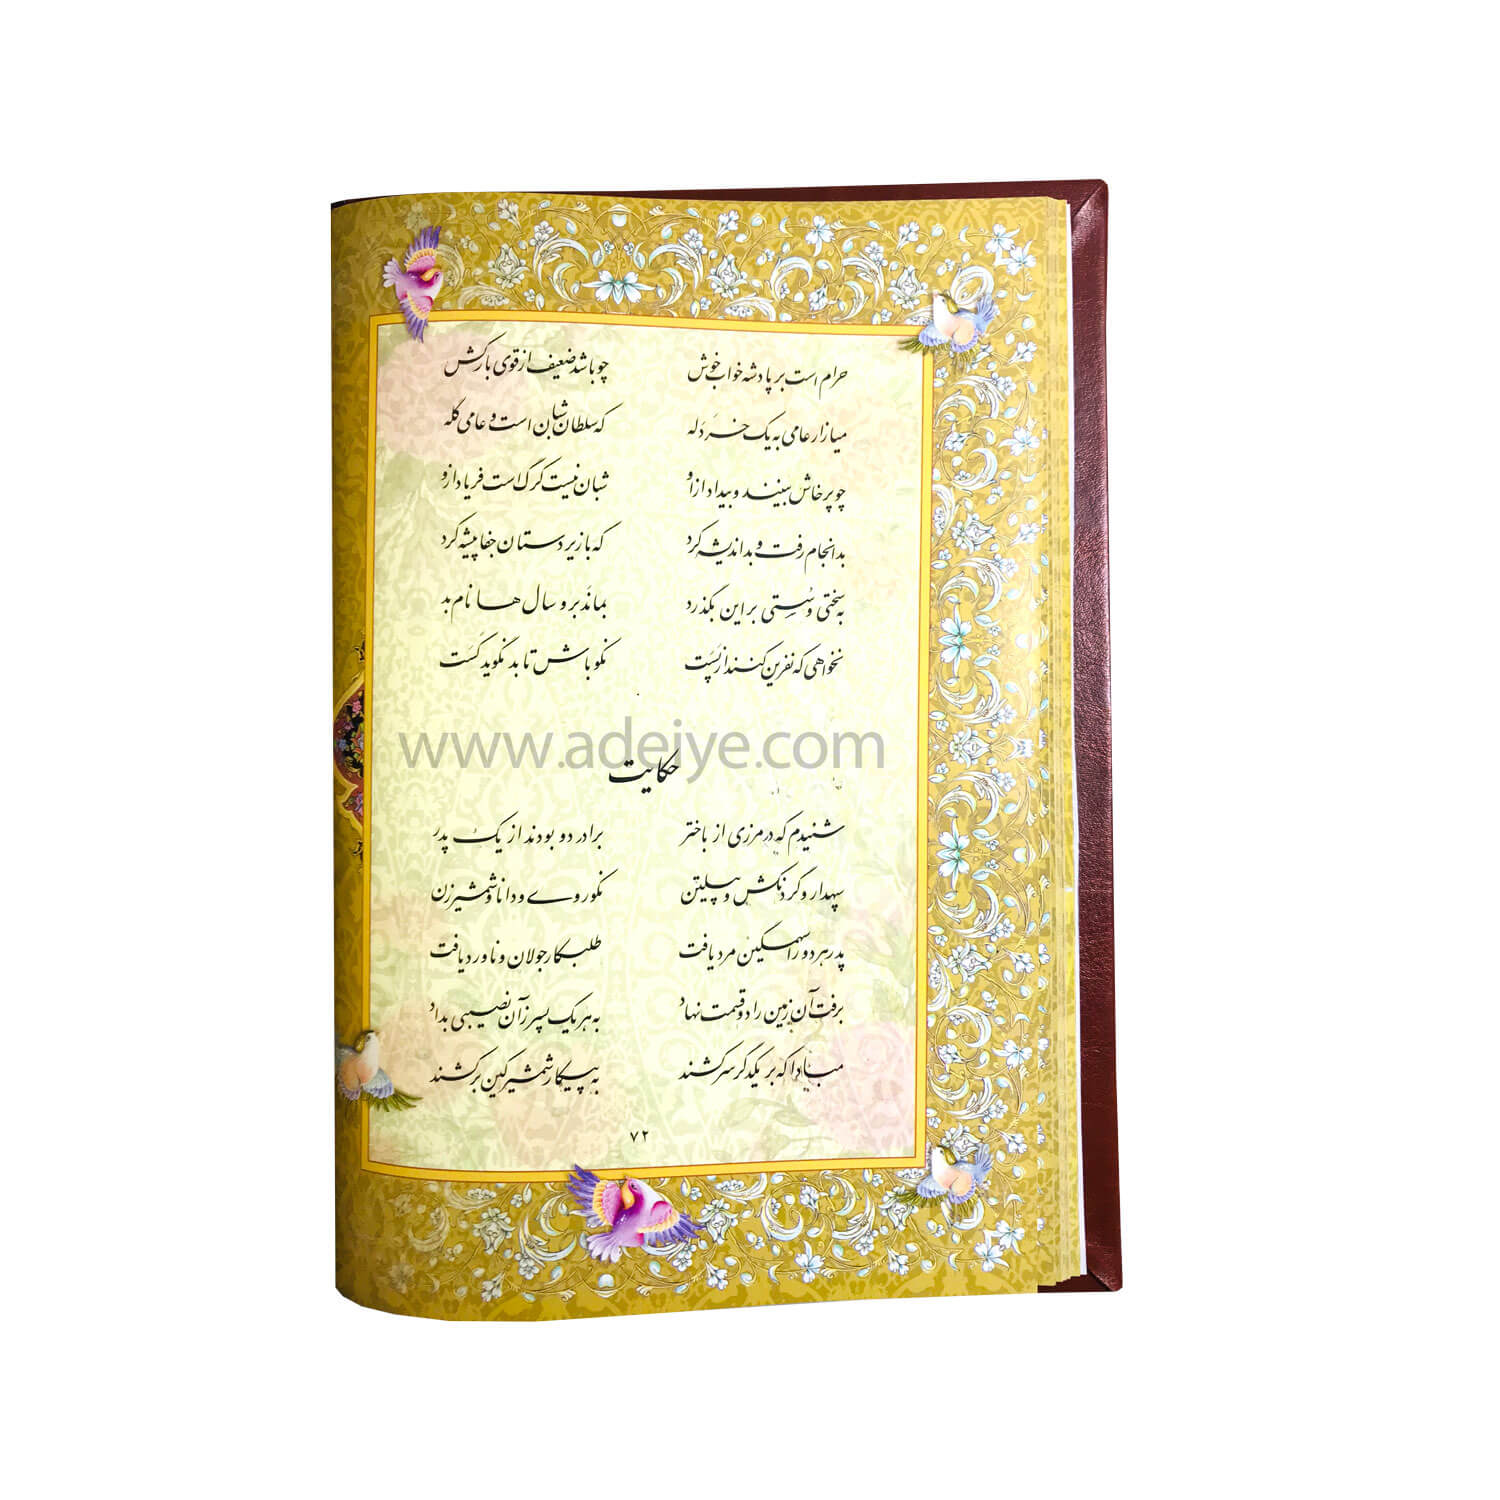 حرام است بر پادشه خواب خوش چو باشد ضعیف از قوی بارکش
میازار عامی به یک خردله که سلطان شبان است و عامی گله
چو پرخاش بینند و بیداد ازو شبان نیست گرگ است فریاد ازو
بد انجام رفت و بد اندیشه کرد که با زیردستان جفا پیشه کرد
به سختی و سستی بر این بگذرد بماند برو سال ها نام بد
نخواهی که نفرین کنند از پست نکو باش تا بد نگوید کست
www.adeiye.com
حکایت
شنیدم که در مرزی از باختر برادر دو بودند از یک پدر
سپهدار و گردنکش و پیلتن نکو روی و دانا و شمشیر زن
پدر هر دو را سهمگین مرد یافت طلبکار جولان و ناورد یافت
برفت آن زمین را دو قسمت نهاد به هر یک پسر زآن نصیبی بداد
مبادا که بر یکدگر سر کشند به پیکار شمشیر کین بر کشند
۷۲